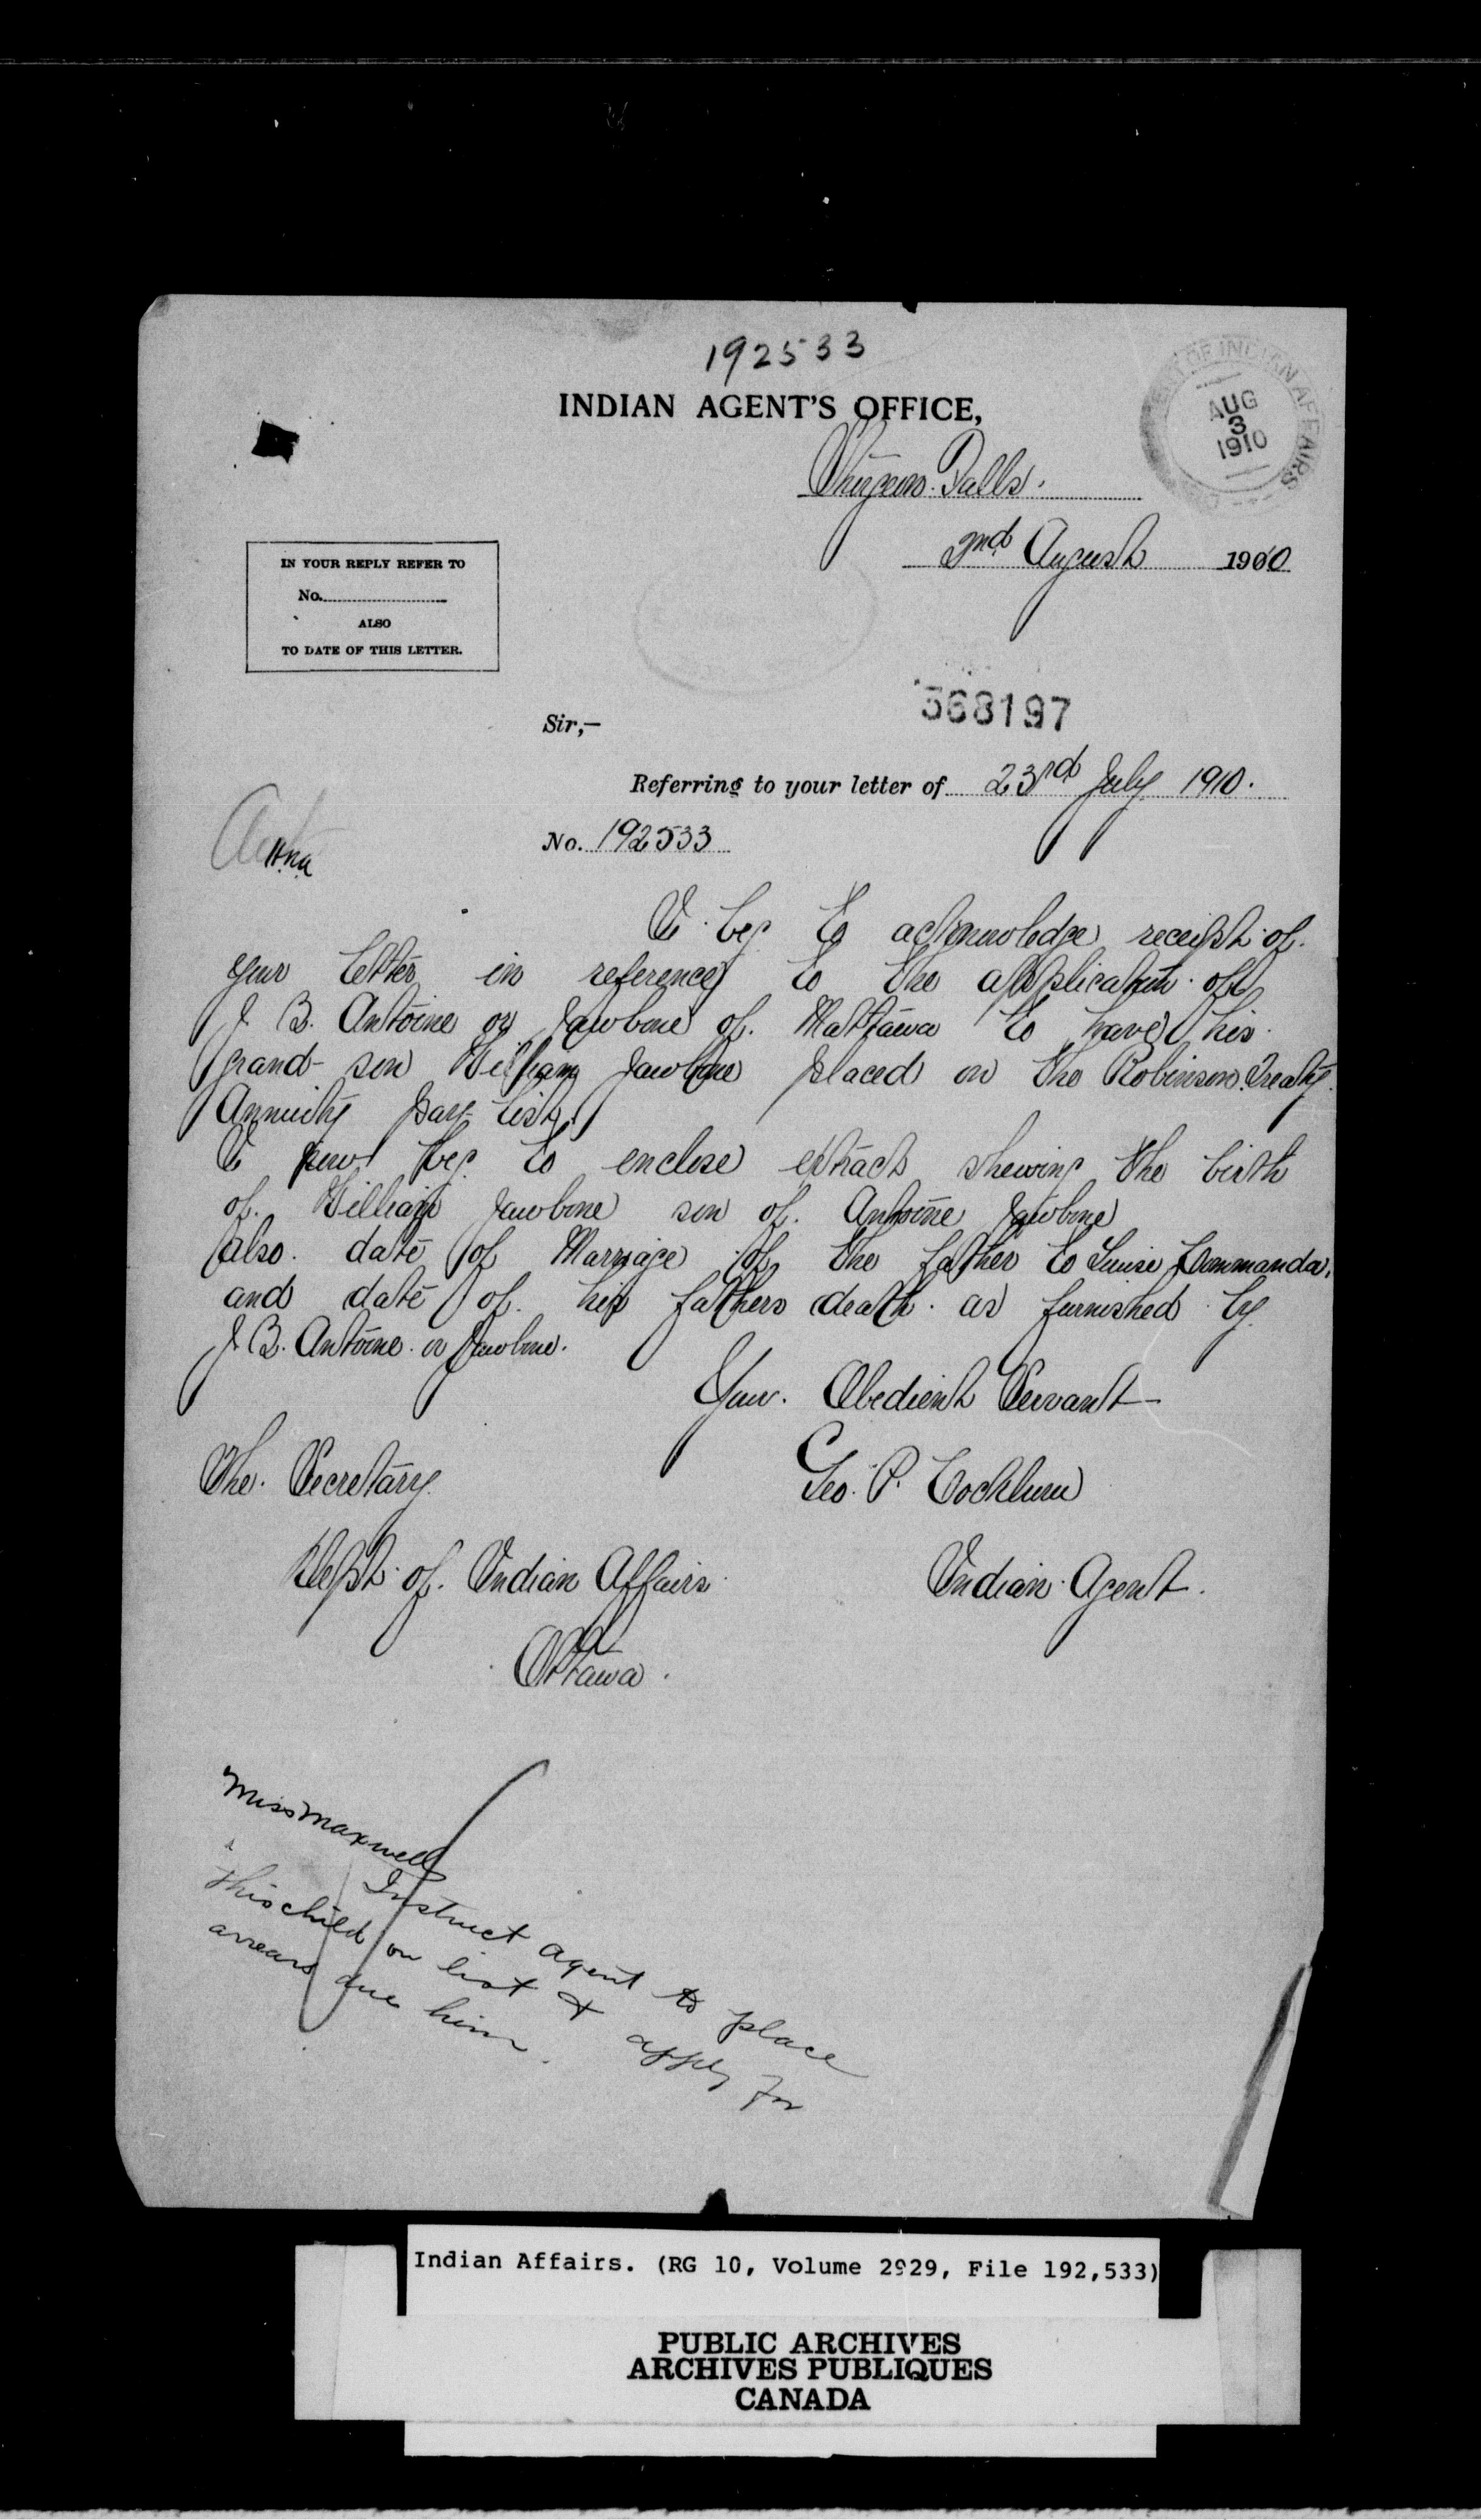 192533
INDIAN AGENT'S OFFICE,
Sturgeon Falls.
2nd August 1910
DEPT OF INDIAN AFFAIRS
AUG
3
1910
IN YOUR REPLY REFER TO
No.
ALSO
TO DATE OF THIS LETTER.
368197
Sir,—
Referring to your letter of 23rd July 1910.
No. 192533
I beg to acknowledge receipt of
your letter in reference to the application of
J. B. Antoine or Jawbone of Mattawa to have his
grand-son William Jawbone placed on the Robinson Treaty
Annuity pay-list.
I now beg to enclose extract shewing the birth
of William Jawbone son of Antoine Jawbone
also date of Marriage of the father to Louise Commanda,
and date of his fathers death as furnished by
J. B. Antoine or Jawbone.
Your Obedient Servant
Geo. P. Cockburn
Indian Agent.
The Secretary
Dept. of Indian Affairs
Ottawa.
Miss Maxwell
Instruct agent to place
this child on list & apply for
arrears due him.
Indian Affairs. (RG 10, Volume 2929, File 192,533)
PUBLIC ARCHIVES
ARCHIVES PUBLIQUES
CANADA